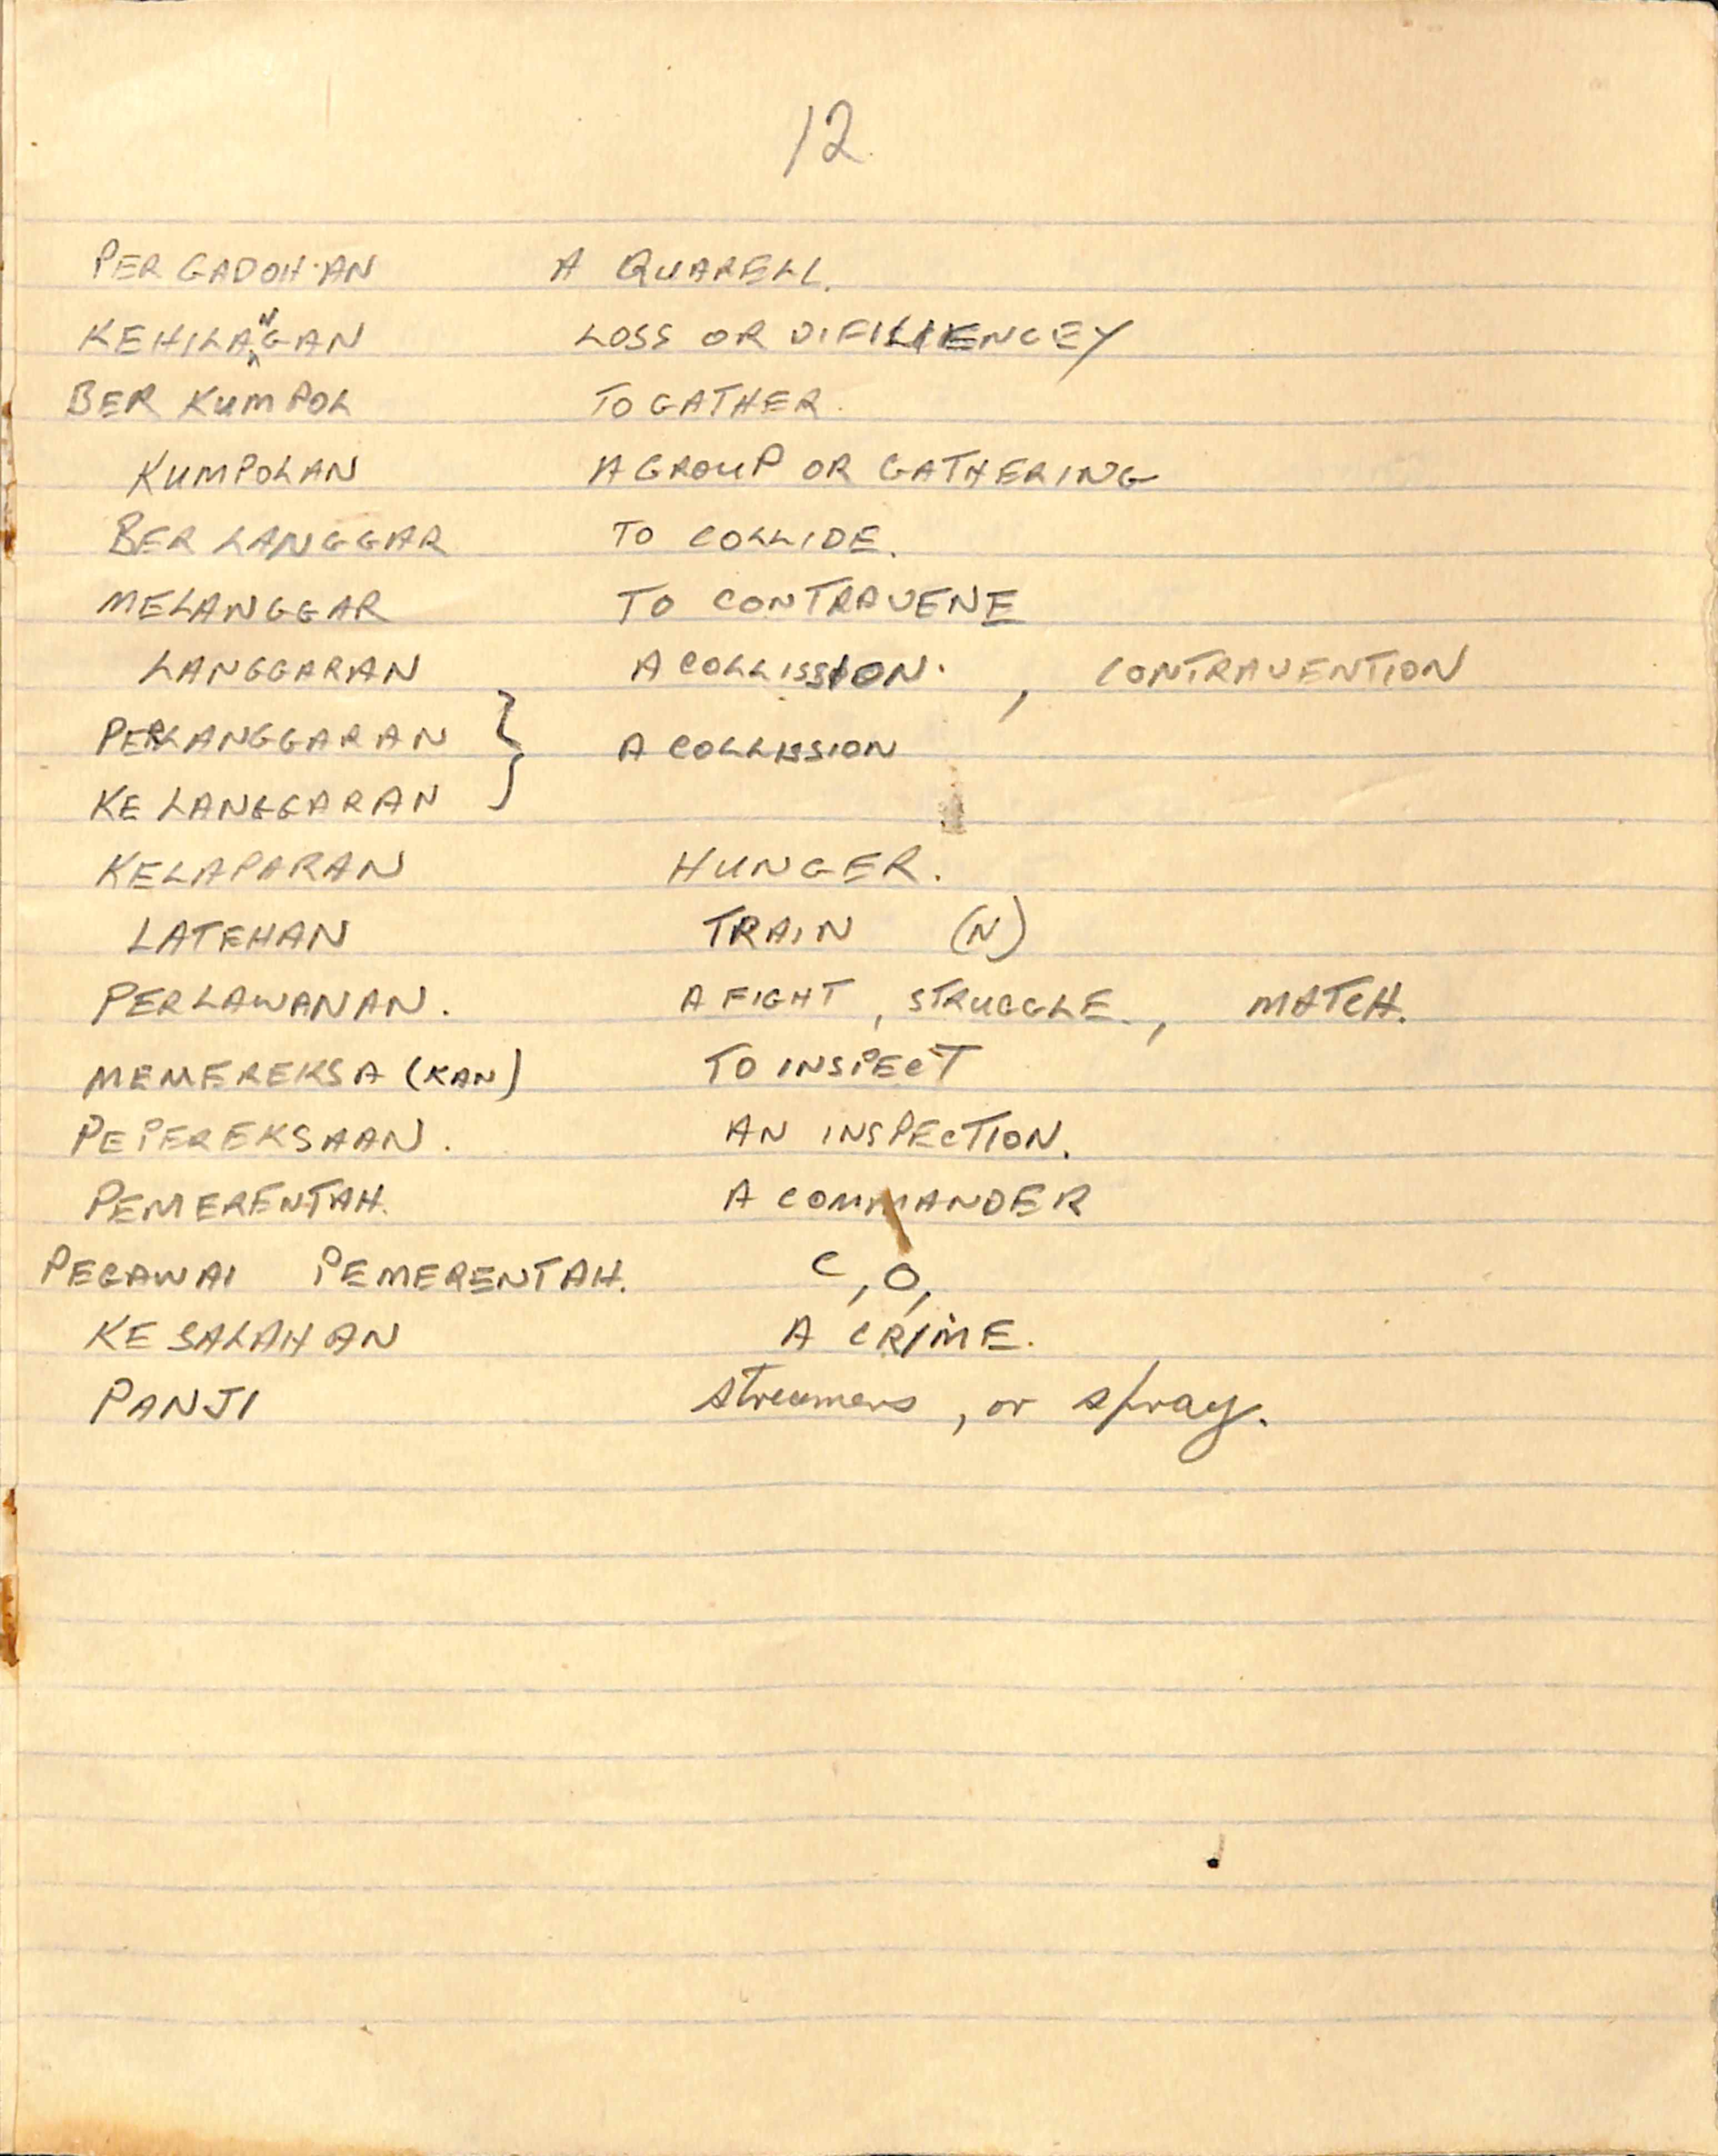 12
PER GADOH AN A QUARELL.
KEHILANGAN LOSS OR DIFILIENCEY
BER KUMPOL TO GATHER.
KUMPOLAN A GROUP OR GATHERING
BER LANGGAR TO COLLIDE.
MELANGGAR TO CONTRAVENE
LANGGARAN A COLLISSION. , CONTRAVENTION
PERLANGGARAN } A COLLISSION
KE LANGGARAN
KELAPARAN HUNGER.
LATEHAN TRAIN (N)
PERLAWANAN. A FIGHT, STRUGGLE, MATCH.
MEMEREKSA (KAN) TO INSPECT
PEPEREKSAAN. AN INSPECTION.
PEMERENTAH. A COMMANDER
PEGAWAI PEMERENTAH. C,O,
KE SALAH AN A CRIME.
PANJI streamers, or spray.